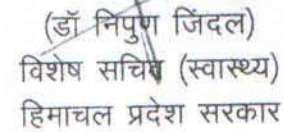 (डॉ निपुण जिंदल)
विशेष सचिव (स्वास्थ्य)
हिमाचल प्रदेश सरकार